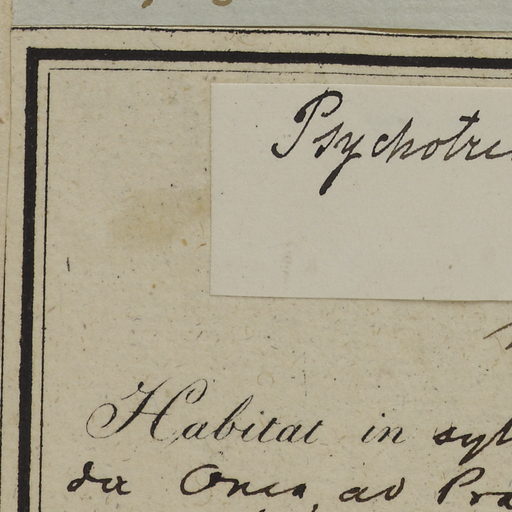 Psychotri
Habitat in syl
da Onça, ad Pra